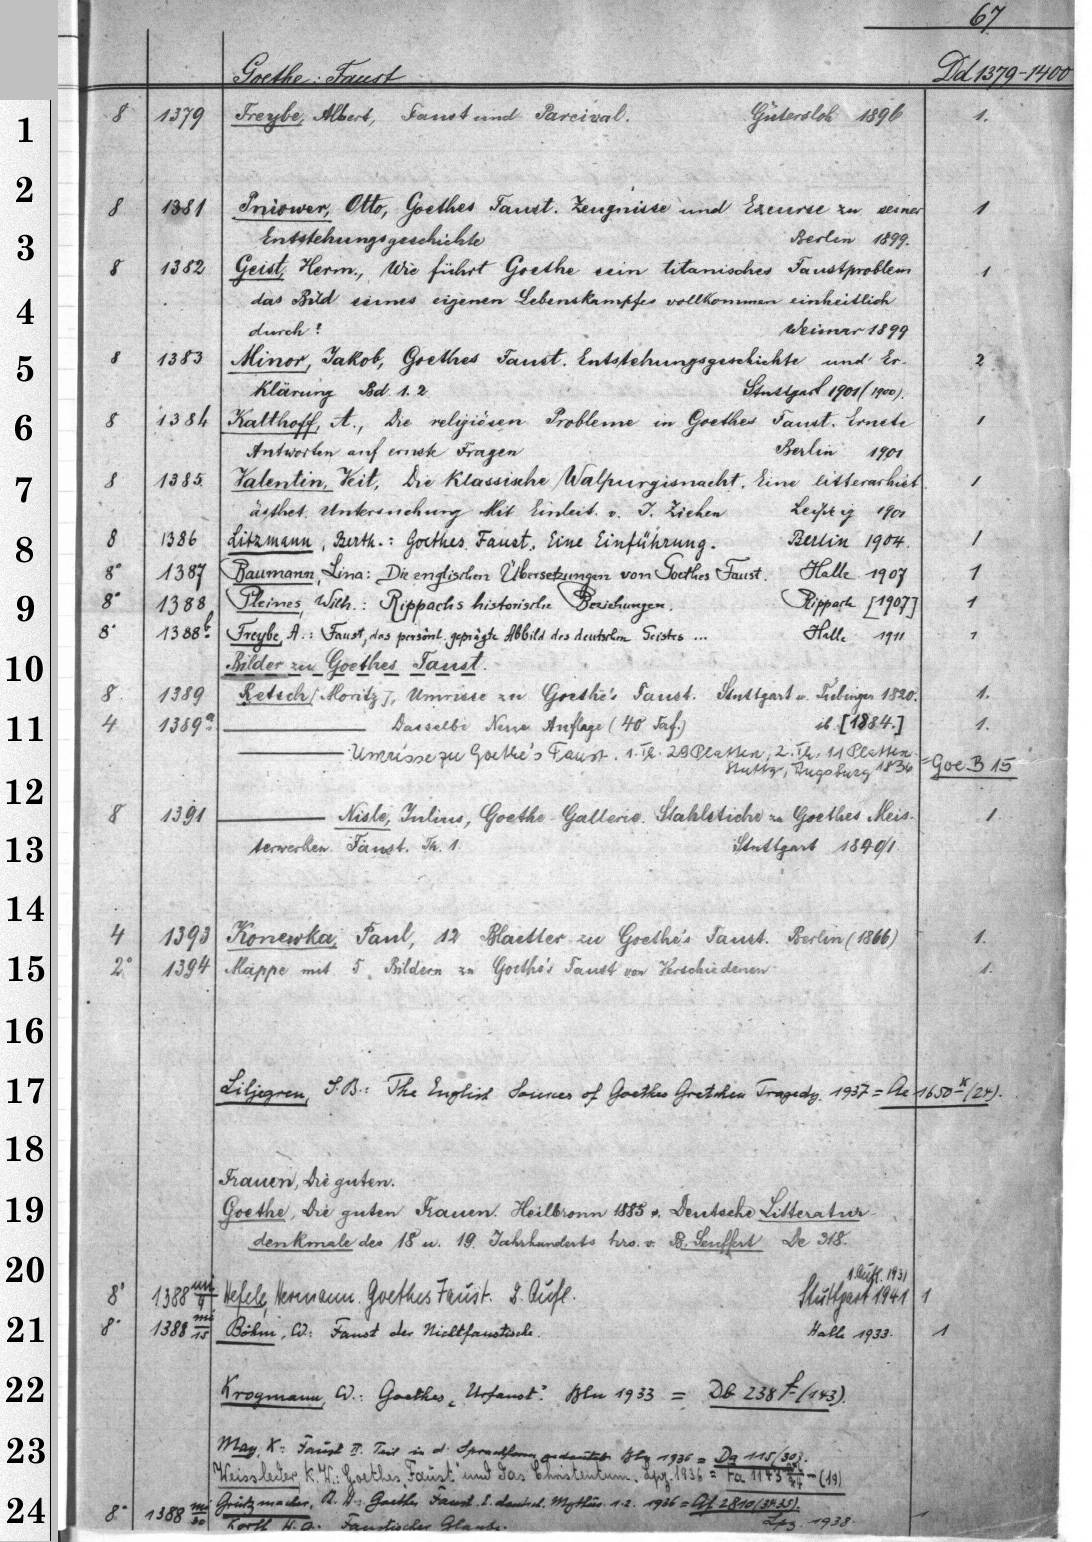 67
Goethe: Faust Dd 1379-1400
1 8 1379 Freybe, Albert, Faust und Parcival. Gütersloh 1896 1.
2
8 1381 Pniower, Otto, Goethes Faust. Zeugnisse und Excurse zu seiner 1
3 Entstehungsgeschichte Berlin 1899.
8 1382 Geist, Herm., Wie führt Goethe sein titanisches Faustproblem 1
4 das Bild seines eigenen Lebenskampfes vollkommen einheitlich
durch? Weimar 1899
5 8 1383 Minor, Jakob, Goethes Faust. Entstehungsgeschichte und Er- 2
klärung Bd 1. 2 Stuttgart 1901 (1900).
6 8 1384 Kalthoff, A., Die religiösen Probleme in Goethes Faust. Ernste 1
Antworten auf ernste Fragen Berlin 1901
7 8 1385. Valentin, Veit, Die klassische Walpurgisnacht. Eine litterarhist 1
ästhet. Untersuchung Mit Einleit. v. J. Ziehen Leipzig 1901
8 8 1386 Litzmann, Berth.: Goethes Faust. Eine Einführung. Berlin 1904. 1
8° 1387 Baumann, Lina: Die englischen Übersetzungen von Goethes Faust. Halle 1907 1
9 8° 1388 Pleines, Wilh.: Rippachs historische Beziehungen. Rippach [1907] 1
8° 1388b. Freybe, A.: Faust, das persönl. geprägte Abbild des deutschen Geistes ... Halle 1911 1
10 Bilder zu Goethes Faust.
8 1389 Retsch [Moritz], Umrisse zu Goethe's Faust. Stuttgart u. Tübingen 1820. 1.
11 4 1389a. Dasselbe Neue Auflage (40 Taf.) ib [1884.] 1.
Umrisse zu Goethe's Faust. 1. Th. 29 Platten; 2. Th. 11 Platten.
Stuttg., Augsburg 1836 = Goe. B 15
12
8 1391 Nisle, Julius, Goethe-Gallerie. Stahlstiche zu Goethes Meis- 1
13 terwerken. Faust. Th. 1. Stuttgart 1840/1.
14
4 1393 Konewka, Paul, 12 Blaetter zu Goethe's Faust. Berlin (1866) 1.
15 2° 1394 Mappe mit 5 Bildern zu Goethe's Faust von Verschiedenen 1.
16
17 Liljegren, S.B.: The English Sources of Goethes Gretchen Tragedy. 1937 = Ae 1650 x/(24).
18
Frauen, Die guten.
19 Goethe, Die guten Frauen. Heilbronn 1885 v. Deutsche Litteratur-
denkmale des 18 u. 19. Jahrhunderts hrs. v. B. Seuffert De 318.
20
1. Aufl. 1931
8° 1388 mi/9 Hefele, Hermann. Goethes Faust. 2. Aufl. Stuttgart 1941 1
21 8° 1388 mi/15 Böhm, W: Faust der Nichtfaustische. Halle 1933. 1
22 Krogmann, W.: Goethes „Urfaust". Bln 1933 = Db 238 f (143).
23 May, K: Faust II. Teil in d. Sprachform gedeutet Bln 1936 = Da 115/30).
Weissleder K. W.: Goethes „Faust" und das Christentum. Lpz. 1936 = Fa 1143 (19)
24 Grützmacher, R. H: Goethes Faust. E. deutsch. Mythus. 1.2. 1936 = Af 2810 (34.35).
8° 1388 mi/20 Korth W. A. Faustischer Glaube. Lpz. 1938.